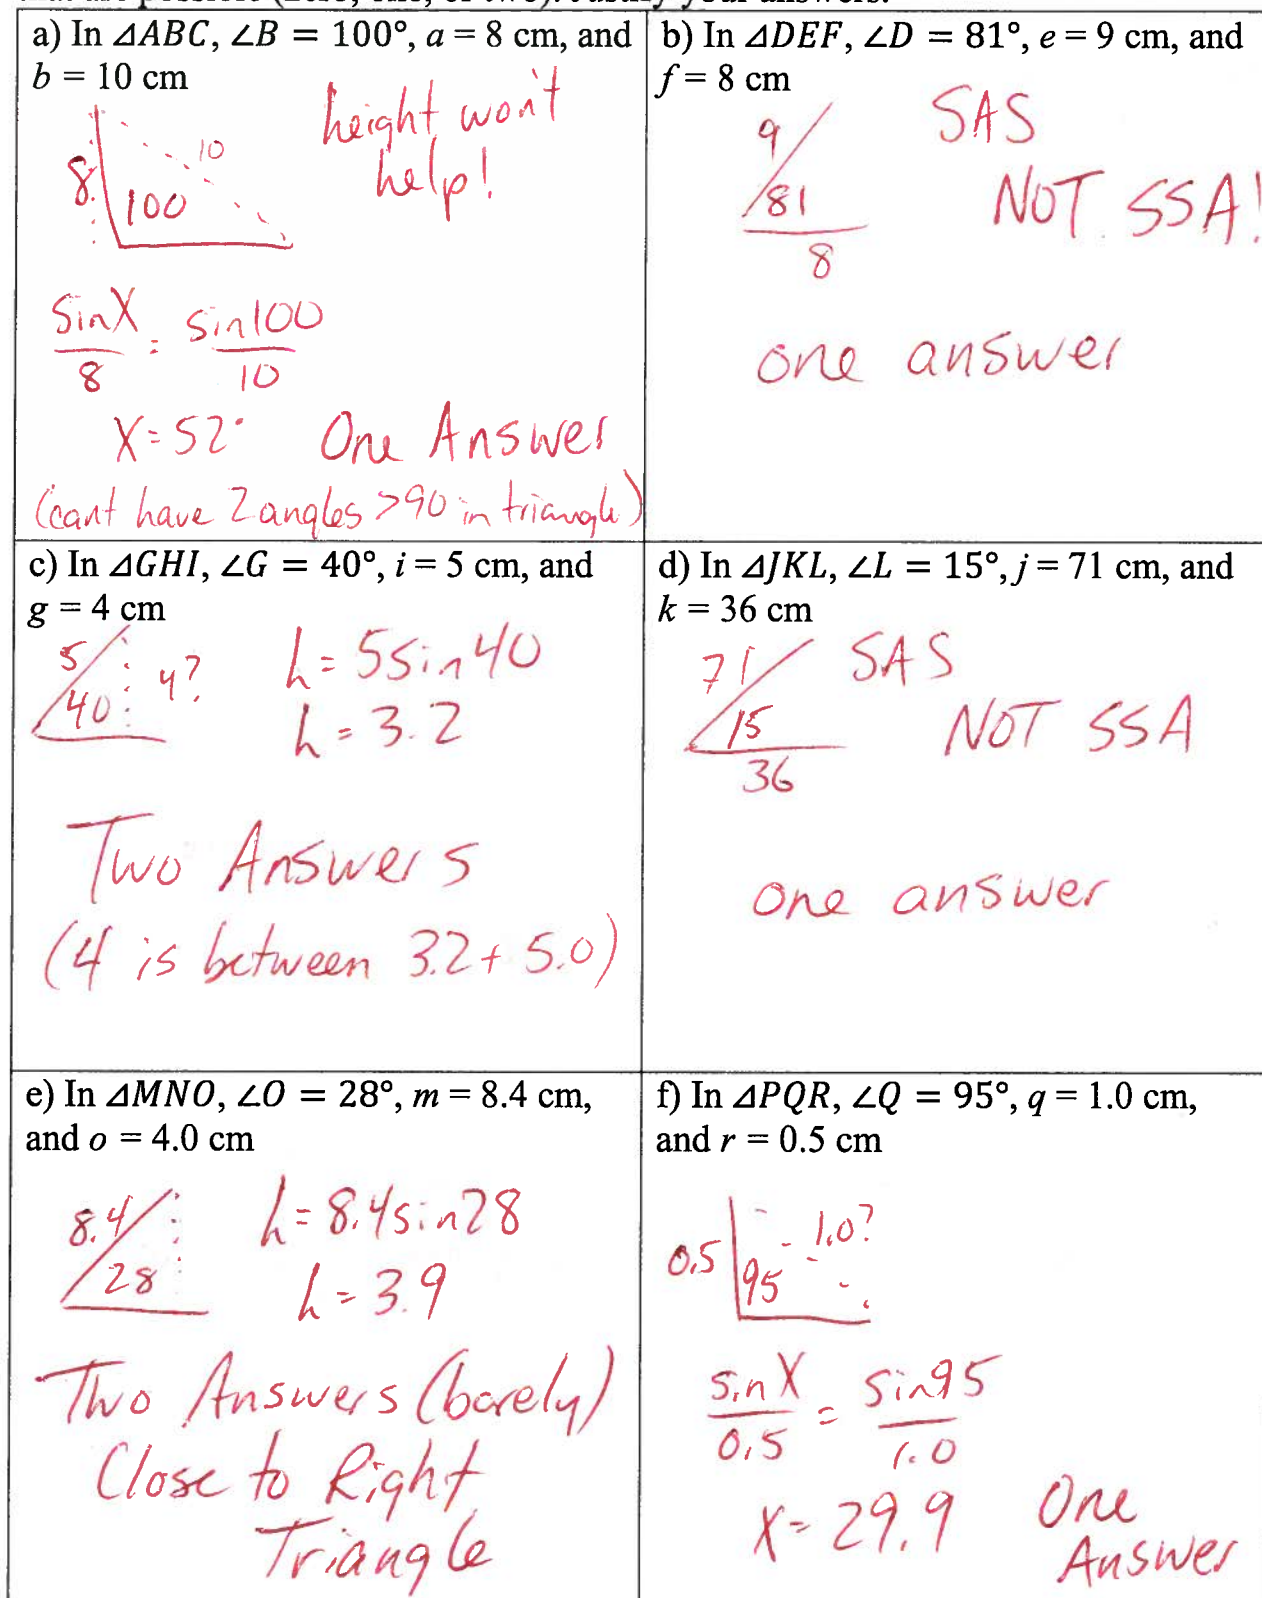 a) In ΔABC, ∠B = 100°, a = 8 cm, and
b = 10 cm
height won't
help!
8
10
100
sinX/8 = sin100/10
X=52° One Answer
(cant have 2 angles >90 in triangle)
b) In ΔDEF, ∠D = 81°, e = 9 cm, and
f = 8 cm
9
81
8
SAS
NOT SSA!
one answer
c) In ΔGHI, ∠G = 40°, i = 5 cm, and
g = 4 cm
5
40
4?
h = 5sin40
h = 3.2
Two Answers
(4 is between 3.2 + 5.0)
d) In ΔJKL, ∠L = 15°, j = 71 cm, and
k = 36 cm
71
15
36
SAS
NOT SSA
one answer
e) In ΔMNO, ∠O = 28°, m = 8.4 cm,
and o = 4.0 cm
8.4
28
h = 8.4sin28
h = 3.9
Two Answers (barely)
Close to Right
Triangle
f) In ΔPQR, ∠Q = 95°, q = 1.0 cm,
and r = 0.5 cm
0.5
95
1.0?
sinX/0.5 = sin95/1.0
X = 29.9 One
Answer